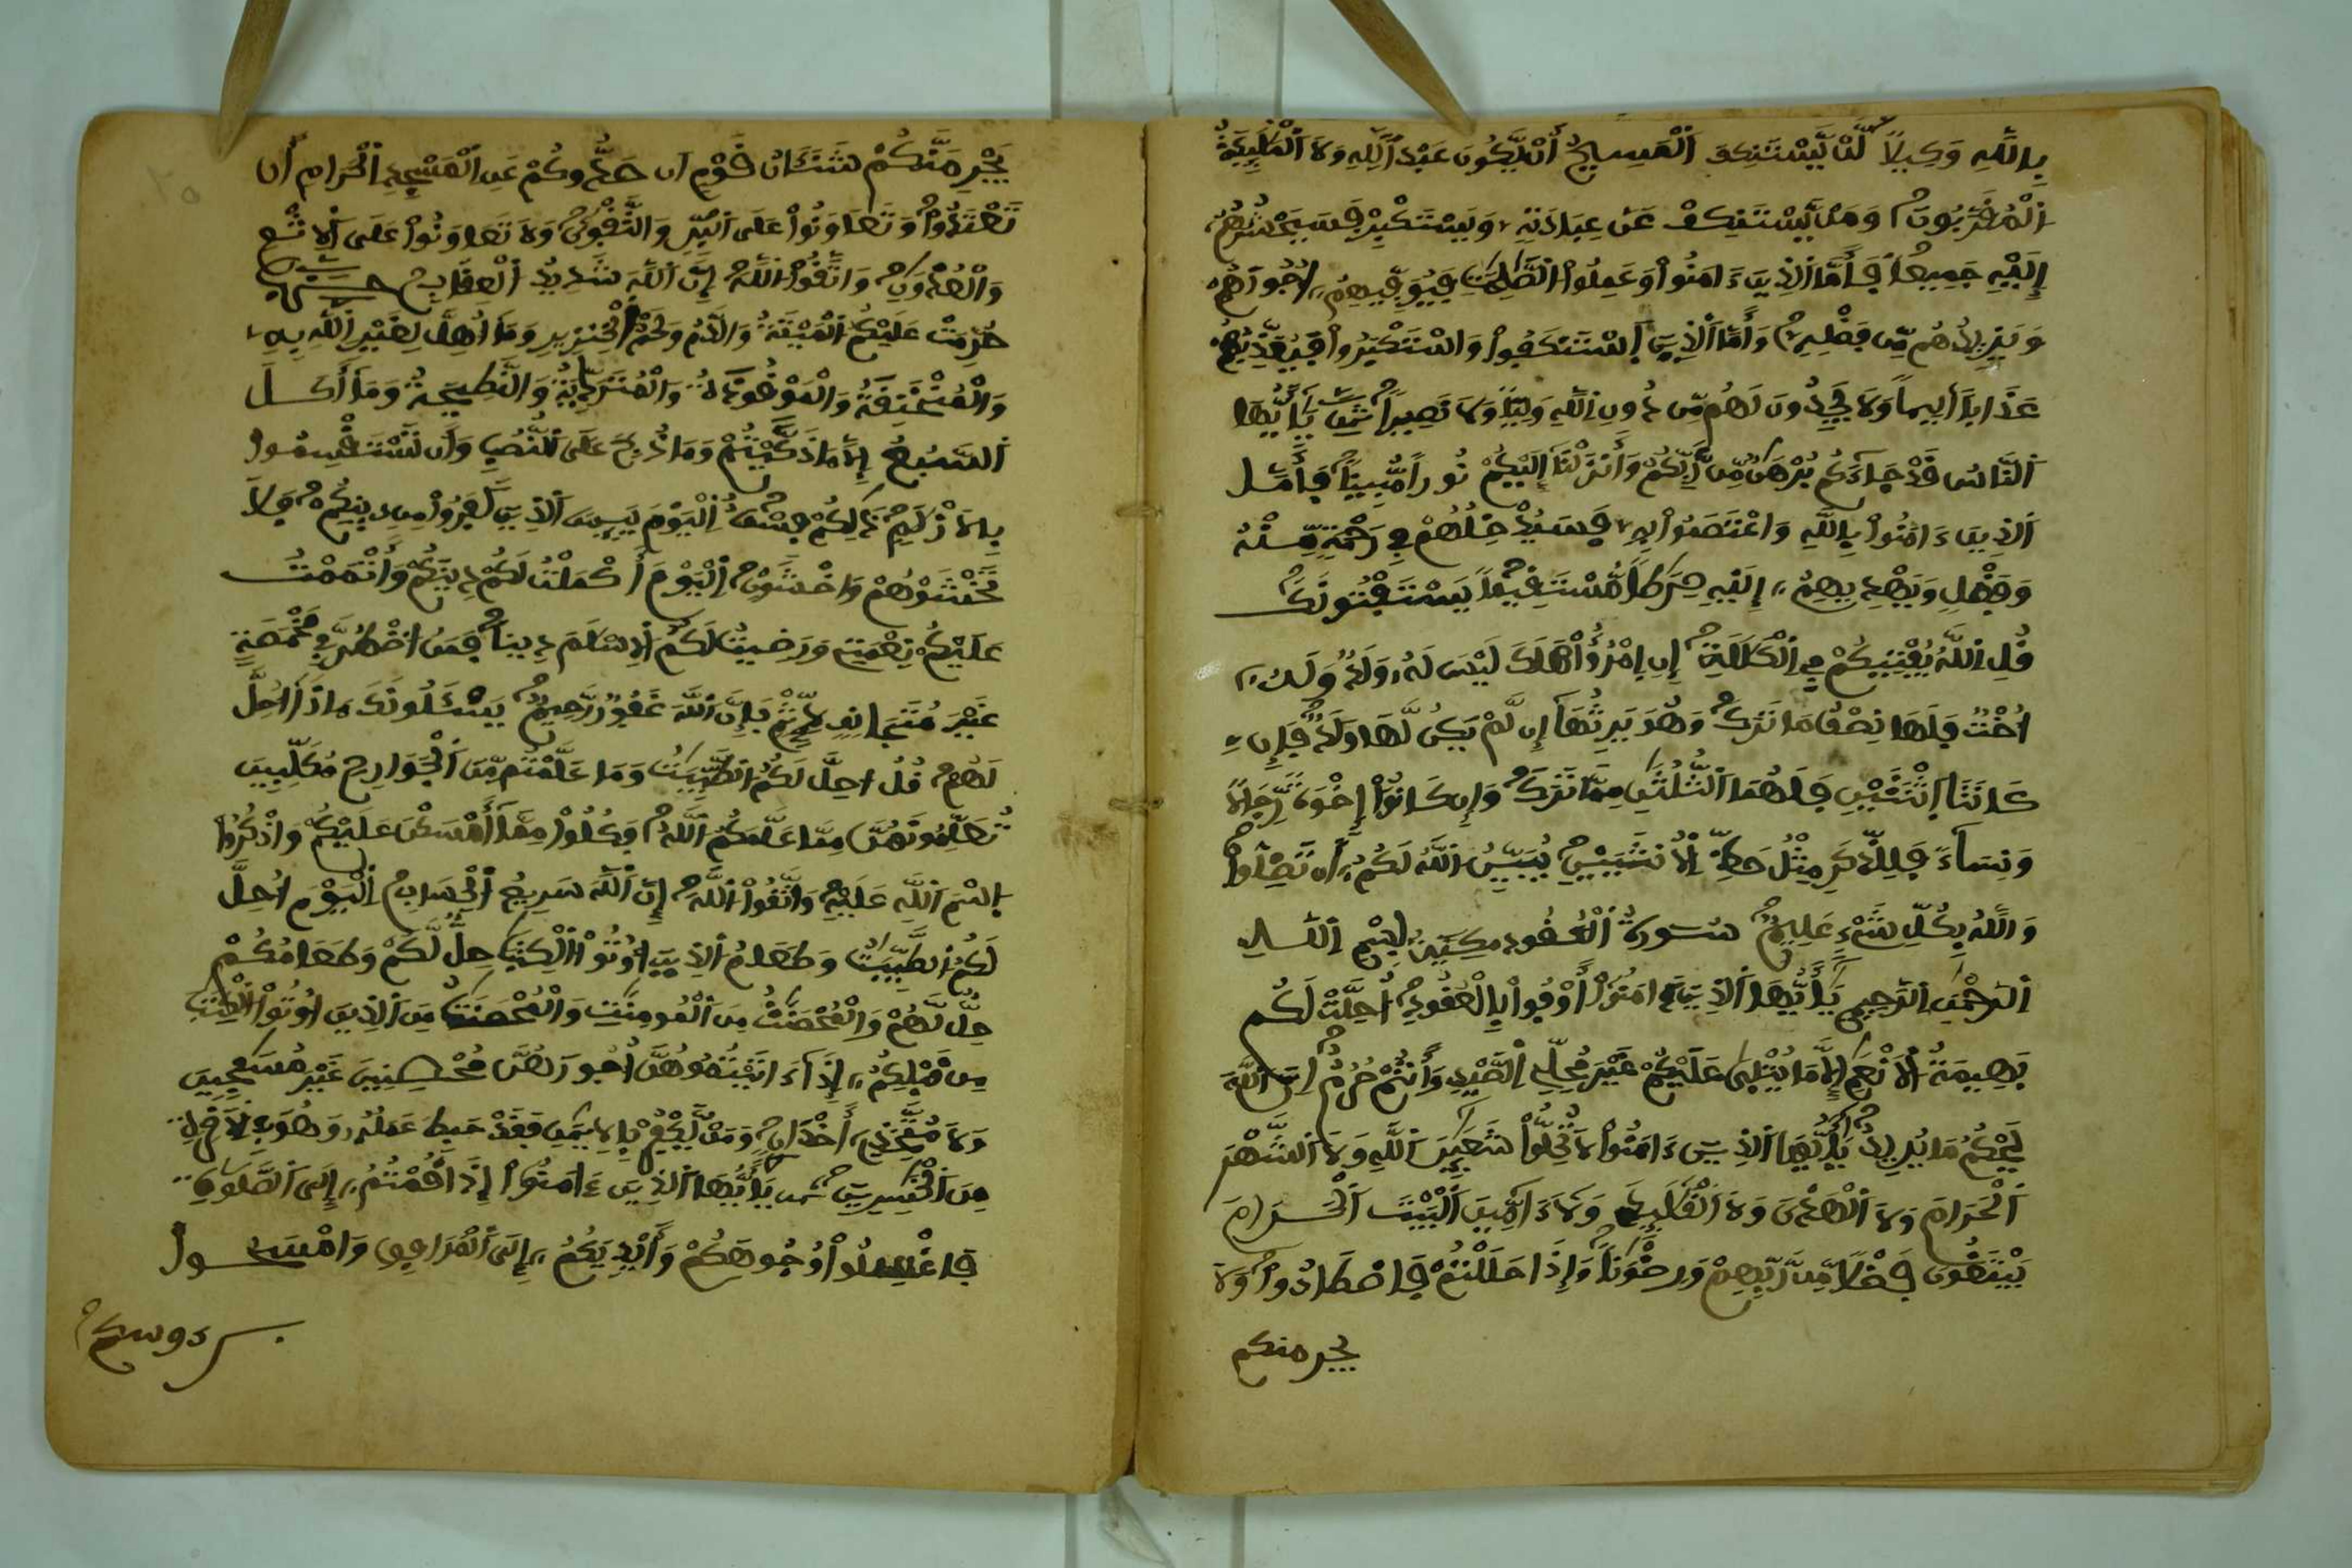 بِاللَّهِ وَكِيلاً لَّنْ يَّسْتَنكِفَ اَلْمَسِيحُ أَنْ يَّكُونَ عَبْداً لِّلهِ وَلاَ اَلْمَلَٰٓئِكَةُ
اُلْمُقَرَّبُونَ وَمَنْ يَّسْتَنكِفْ عَنْ عِبَادَتِهِۦ وَيَسْتَكْبِرْ فَسَيَحْشُرُهُمُۥٓ
إِلَيْهِ جَمِيعاً فَأَمَّا اَلذِينَ ءَامَنُواْ وَعَمِلُواْ اُلصَّٰلِحَٰتِ فَيُوَفِّيهِمُۥٓ أُجُورَهُمْ
وَيَزِيدُهُم مِّن فَضْلِهِۦ وَأَمَّا اَلذِينَ اَسْتَنكَفُواْ وَاسْتَكْبَرُواْ فَيُعَذِّبُهُمْ
عَذَاباً أَلِيماً وَلاَ يَجِدُونَ لَهُم مِّن دُونِ اِللَّهِ وَلِيّاً وَلاَ نَصِيراً ثمن يَٰٓأَيُّهَا
اَلنَّاسُ قَدْ جَآءَكُم بُرْهَٰنٌ مِّن رَّبِّكُمْ وَأَنزَلْنَآ إِلَيْكُمْ نُوراً مُّبِيناً فَأَمَّا
اَلذِينَ ءَامَنُواْ بِاللَّهِ وَاعْتَصَمُواْ بِهِۦ فَسَيُدْخِلُهُمْ فِي رَحْمَةٍ مِّنْهُ
وَفَضْلٍ وَيَهْدِيهِمُۥٓ إِلَيْهِ صِرَٰطاً مُّسْتَقِيماً يَسْتَفْتُونَكَ
قُلِ اِللَّهُ يُفْتِيكُمْ فِي اِلْكَلَٰلَةِ إِنِ اِمْرُؤٌاْ هَلَكَ لَيْسَ لَهُۥ وَلَدٌ وَلَهُۥٓ
أُخْتٌ فَلَهَا نِصْفُ مَا تَرَكَ وَهُوَ يَرِثُهَآ إِن لَّمْ يَكُن لَّهَا وَلَدٌ فَإِن
كَانَتَا اَثْنَتَيْنِ فَلَهُمَا اَلثُّلُثَٰنِ مِمَّا تَرَكَ وَإِن كَانُوٓاْ إِخْوَةً رِّجَالاً
وَنِسَآءً فَلِلذَّكَرِ مِثْلُ حَظِّ اِلْأُنثَيَيْنِ يُبَيِّنُ اُللَّهُ لَكُمُۥٓ أَن تَضِلُّواْ
وَاللَّهُ بِكُلِّ شَيْءٍ عَلِيمٌ سورة اَلعقود مدنية بِسْمِ اِللَّهِ
اِلرَّحْمَٰنِ اِلرَّحِيمِ يَٰٓأَيُّهَا اَلذِينَ ءَامَنُوٓاْ أَوْفُواْ بِالْعُقُودِ أُحِلَّتْ لَكُم
بَهِيمَةُ اُلْأَنْعَٰمِ إِلاَّ مَا يُتْلَىٰ عَلَيْكُمْ غَيْرَ مُحِلِّي اِلصَّيْدِ وَأَنتُمْ حُرُمٌ إِنَّ اَللَّهَ
يَحْكُمُ مَا يُرِيدُ يَٰٓأَيُّهَا اَلذِينَ ءَامَنُواْ لاَ تُحِلُّواْ شَعَٰٓئِرَ اَللَّهِ وَلاَ اَلشَّهْرَ
اَلْحَرَامَ وَلاَ اَلْهَدْيَ وَلاَ اَلْقَلَٰٓئِدَ وَلاَ ءَآمِّينَ اَلْبَيْتَ اَلْحَرَامَ
يَبْتَغُونَ فَضْلاً مِّن رَّبِّهِمْ وَرِضْوَٰناً وَإِذَا حَلَلْتُمْ فَاصْطَادُواْ وَلاَ
يجرمنكم
يَجْرِمَنَّكُمْ شَنَـَٔانُ قَوْمٍ أَن صَدُّوكُمْ عَنِ اِلْمَسْجِدِ اِلْحَرَامِ أَن
تَعْتَدُواْ وَتَعَاوَنُواْ عَلَى اَلْبِرِّ وَالتَّقْوَىٰ وَلاَ تَعَاوَنُواْ عَلَى اَلْإِثْمِ
وَالْعُدْوَٰنِ وَاتَّقُواْ اُللَّهَ إِنَّ اَللَّهَ شَدِيدُ اُلْعِقَابِ
حُرِّمَتْ عَلَيْكُمُ اُلْمَيْتَةُ وَالدَّمُ وَلَحْمُ اُلْخِنزِيرِ وَمَآ أُهِلَّ لِغَيْرِ اِللَّهِ بِهِۦ
وَالْمُنْخَنِقَةُ وَالْمَوْقُوذَةُ وَالْمُتَرَدِّيَةُ وَالنَّطِيحَةُ وَمَآ أَكَلَ
اَلسَّبُعُ إِلاَّ مَا ذَكَّيْتُمْ وَمَا ذُبِحَ عَلَى اَلنُّصُبِ وَأَن تَسْتَقْسِمُواْ
بِالْأَزْلَٰمِ ذَٰلِكُمْ فِسْقٌ اِلْيَوْمَ يَئِسَ اَلذِينَ كَفَرُواْ مِن دِينِكُمْ فَلاَ
تَخْشَوْهُمْ وَاخْشَوْنِ اِلْيَوْمَ أَكْمَلْتُ لَكُمْ دِينَكُمْ وَأَتْمَمْتُ
عَلَيْكُمْ نِعْمَتِي وَرَضِيتُ لَكُمُ اُلْإِسْلَٰمَ دِيناً فَمَنُ اُضْطُرَّ فِي مَخْمَصَةٍ
غَيْرَ مُتَجَانِفٍ لِّإِثْمٍ فَإِنَّ اَللَّهَ غَفُورٌ رَّحِيمٌ يَسْـَٔلُونَكَ مَاذَآ أُحِلَّ
لَهُمْ قُلُ احِلَّ لَكُمُ اُلطَّيِّبَٰتُ وَمَا عَلَّمْتُم مِّنَ اَلْجَوَارِحِ مُكَلِّبِينَ
تُعَلِّمُونَهُنَّ مِمَّا عَلَّمَكُمُ اُللَّهُ فَكُلُواْ مِمَّآ أَمْسَكْنَ عَلَيْكُمْ وَاذْكُرُواْ
اُسْمَ اَللَّهِ عَلَيْهِ وَاتَّقُواْ اُللَّهَ إِنَّ اَللَّهَ سَرِيعُ اُلْحِسَابِ اِلْيَوْمَ أُحِلَّ
لَكُمُ اُلطَّيِّبَٰتُ وَطَعَامُ اُلذِينَ أُوتُواْ اُلْكِتَٰبَ حِلٌّ لَّكُمْ وَطَعَامُكُمْ
حِلٌّ لَّهُمْ وَالْمُحْصَنَٰتُ مِنَ اَلْمُومِنَٰتِ وَالْمُحْصَنَٰتُ مِنَ اَلذِينَ أُوتُواْ اُلْكِتَٰبَ
مِن قَبْلِكُمُۥٓ إِذَآ ءَاتَيْتُمُوهُنَّ أُجُورَهُنَّ مُحْصِنِينَ غَيْرَ مُسَٰفِحِينَ
وَلاَ مُتَّخِذِيٓ أَخْدَانٍ وَمَنْ يَّكْفُرْ بِالْإِيمَٰنِ فَقَدْ حَبِطَ عَمَلُهُۥ وَهُوَ فِي اِلْأَخِرَةِ
مِنَ اَلْخَٰسِرِينَ ثمن يَٰٓأَيُّهَا اَلذِينَ ءَامَنُوٓاْ إِذَا قُمْتُمُۥٓ إِلَى اَلصَّلَوٰةِ
فَاغْسِلُواْ وُجُوهَكُمْ وَأَيْدِيَكُمُۥٓ إِلَى اَلْمَرَافِقِ وَامْسَحُواْ
برءوسكم